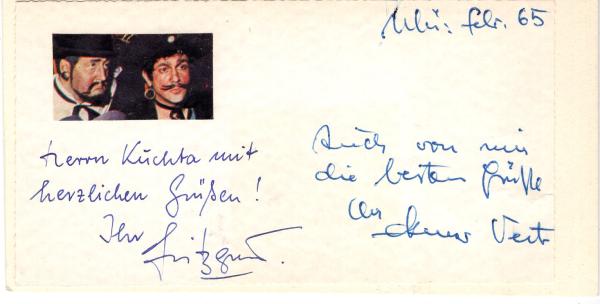 Mü: febr. 65
Herrn Kuchta mit
herzlichen Grüßen!
Ihr
Auch von mir
die besten Grüße
Ihr